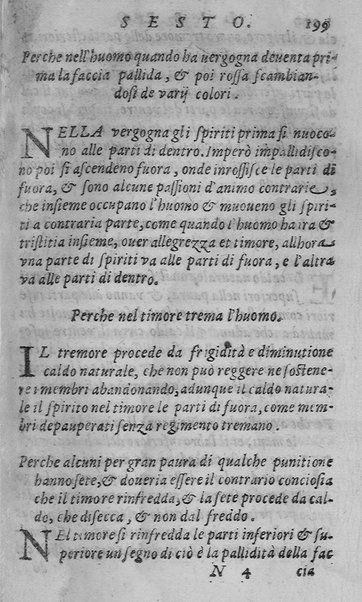 SESTO. 199
Perche nell'huomo quando ha vergogna deuenta pri
ma la faccia pallida, & poi rossa scambian-
dosi de varij colori.
NELLA vergogna gli spiriti prima si nuoco-
no alle parti di dentro. Imperò impallidisco-
no poi si ascendeno fuora, onde inrossisce le parti di
fuora, & sono alcune passioni d'animo contrarie,
che insieme occupano l'huomo & muoueno gli spiri-
ti a contraria parte, come quando l'huomo ha ira &
tristitia insieme, ouer allegrezza et timore, allhora
vna parte di spiriti va alle parti di fuora, e l'altra
va alle parti di dentro.
Perche nel timore trema l'huomo.
IL tremore procede da frigidità e diminutione
caldo naturale, che non può reggere ne sostene-
re i membri abandonando, adunque il caldo natura-
le il spirito nel timore le parti di fuora, come mem-
bri depauperati senza regimento tremano.
Perche alcuni per gran paura di qualche punitione
hanno sete, & doueria essere il contrario conciosia
che il timore rinfredda, & la sete procede da cal-
do, che disecca, & non dal freddo.
NEl timore si rinfredda le parti inferiori & su-
periore un segno di ciò è la pallidità della fac
N 4 cia